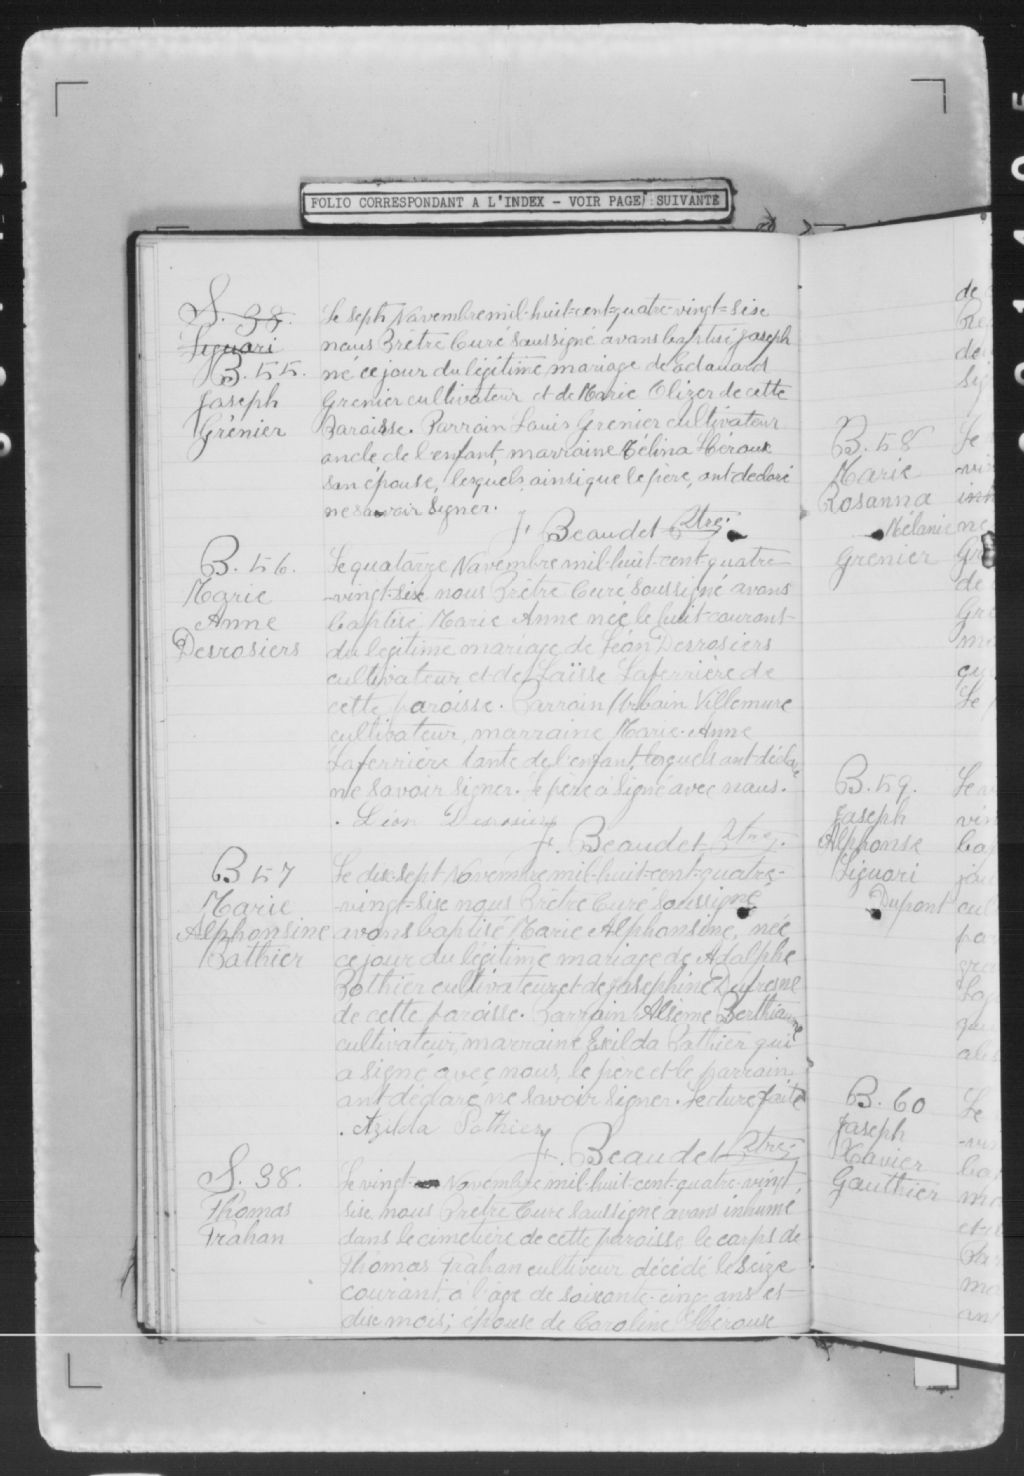 FOLIO CORRESPONDANT A L'INDEX - VOIR PAGE SUIVANTE
S. 38.
Liguori
B. 55.
Joseph
Grenier
Le sept Novembre mil-huit-cent-quatre-vingt-sixe
nous Prêtre Curé Soussigné avons baptisé Joseph
né ce jour du légitime mariage de Edouard
Grenier cultivateur et de Marie Elizer de cette
Paroisse. Parrain Louis Grenier cultivateur
oncle de l'enfant, marraine Mélina Héroux
son épouse, lesquels, ainsi que le père, ont declaré
ne savoir Signer.
J. Beaudet Ptre.
B. 56.
Marie
Anne
Desrosiers
Le quatorze Novembre mil-huit-cent-quatre
-vingt-six nous Prêtre Curé Soussigné avons
baptisé Marie Anne née le huit courant
du légitime mariage de Léon Desrosiers
cultivateur et de Laïsse Laferrière de
cette paroisse. Parrain Urbain Villemure
cultivateur, marraine Marie-Anne
Laferrière tante de l'enfant lesquels ont déclaré
ne savoir Signer. le père a signé avec nous.
. Léon Desrosiers
J. Beaudet Ptre.
B 57
Marie
Alphonsine
Pothier
Le dix-sept Novembre mil-huit-cent-quatre-
-vingt-sixe nous Prêtre Curé Soussigné
avons baptisé Marie Alphonsine, née
ce jour du légitime mariage de Adolphe
Pothier cultivateur et de Josephine Dufresne
de cette paroisse. Parrain Berthiaume
cultivateur, marraine Exilda Pothier qui
a signé avec nous, le père et le parrain
ont déclaré ne savoir signer. Lecture faite
. Pothier
J. Beaudet Ptre.
S. 38.
Thomas
Frahan
Le vingt Novembre mil-huit-cent-quatre-vingt
sixe nous Prêtre Curé Soussigné avons inhumé
dans le cimetière de cette paroisse le corps de
Thomas Frahan cultiveur décédé le seize
courant, à l'âge de soixante-cinq ans et
dixe mois; épouse de Caroline Hérouse
B. 58
Marie
Rosanna
Mélanie
Grenier
B. 59.
Joseph
Alphonse
Liguori
Dupont
B. 60
Joseph
Xavier
Gauthier